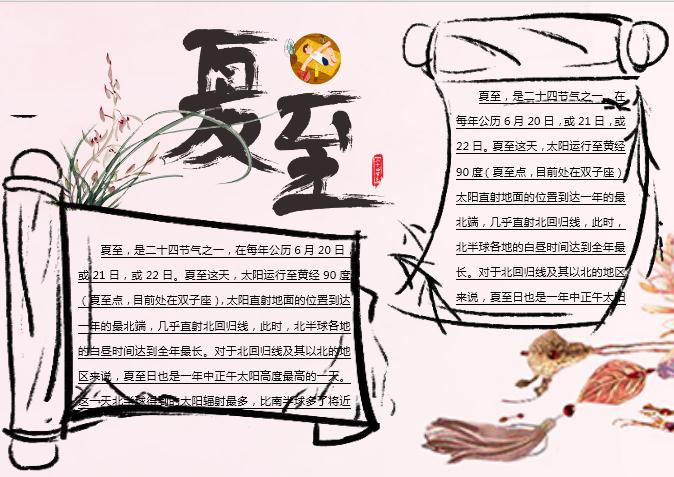 夏至
夏至，是二十四节气之一，在每年公历 6 月 20 日，
或 21 日，或 22 日。夏至这天，太阳运行至黄经 90 度
（夏至点，目前处在双子座），太阳直射地面的位置到达
一年的最北端，几乎直射北回归线，此时，北半球各地
的白昼时间达到全年最长。对于北回归线及其以北的地
区来说，夏至日也是一年中正午太阳高度最高的一天。
这一天北半球得到的太阳辐射最多，比南半球多了将近
夏至，是二十四节气之一，在
每年公历 6 月 20 日，或 21 日，或
22 日。夏至这天，太阳运行至黄经
90 度（夏至点，目前处在双子座），
太阳直射地面的位置到达一年的最
北端，几乎直射北回归线，此时，
北半球各地的白昼时间达到全年最
长。对于北回归线及其以北的地区
来说，夏至日也是一年中正午太阳